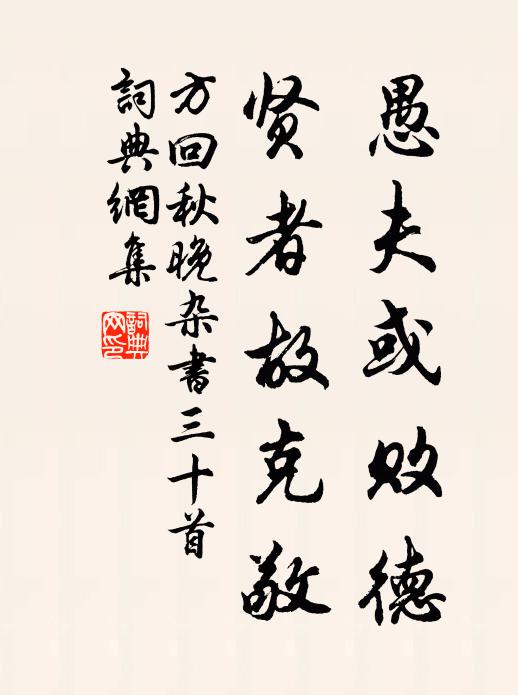 愚夫或败德
贤者故克敬
方回秋晚杂书三十首
詞典網集
詞典网印